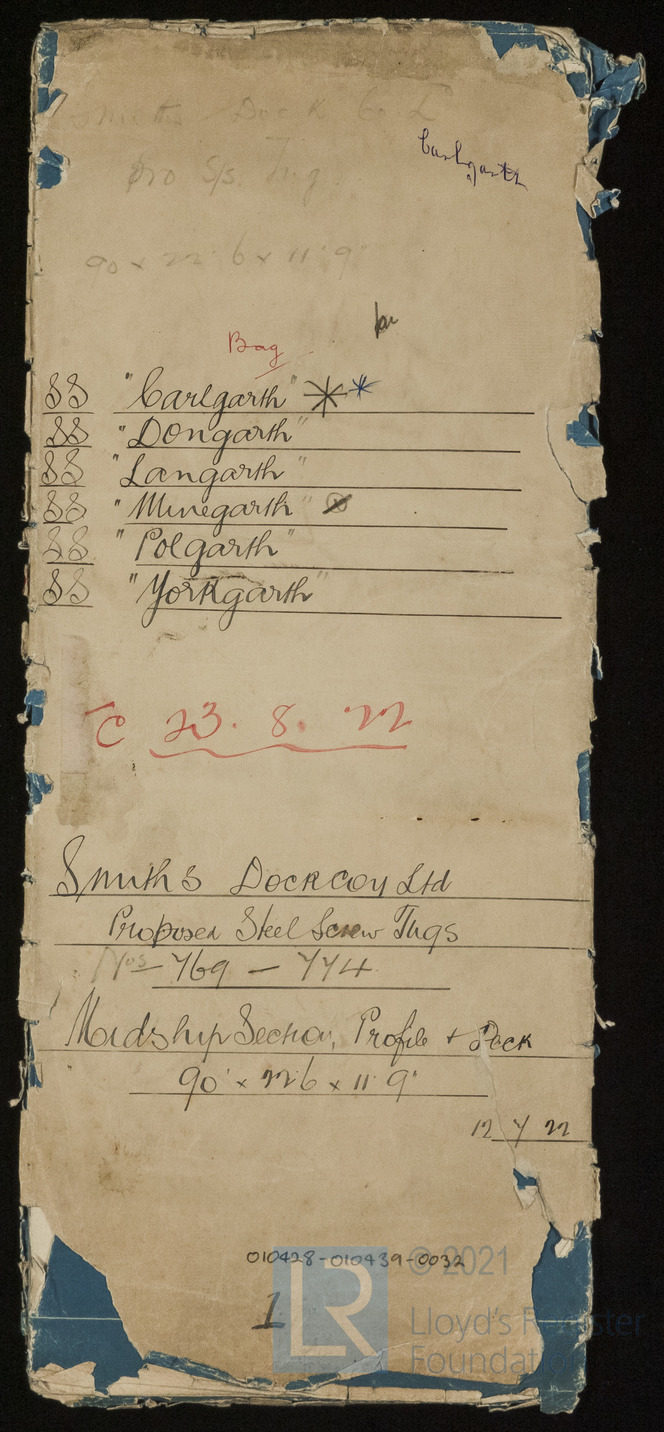 Smiths Dock Co L
Carlgarth
pro S/s Tug
90 x 22' 6 x 11' 9"
Bag
SS "Carlgarth"
SS "Dongarth"
SS "Langarth"
SS "Minegarth"
SS "Polgarth"
SS "Yorkgarth"
TC 23. 8. '22
Smiths Dock Coy Ltd
Proposed Steel Screw Tugs
Nos 769 - 774
Midship Section, Profile + Deck
90' x 22 6 x 11' 9"
12 7 22
010428-010439-0032
© 2021
1
LR
Lloyd's Register
Foundation